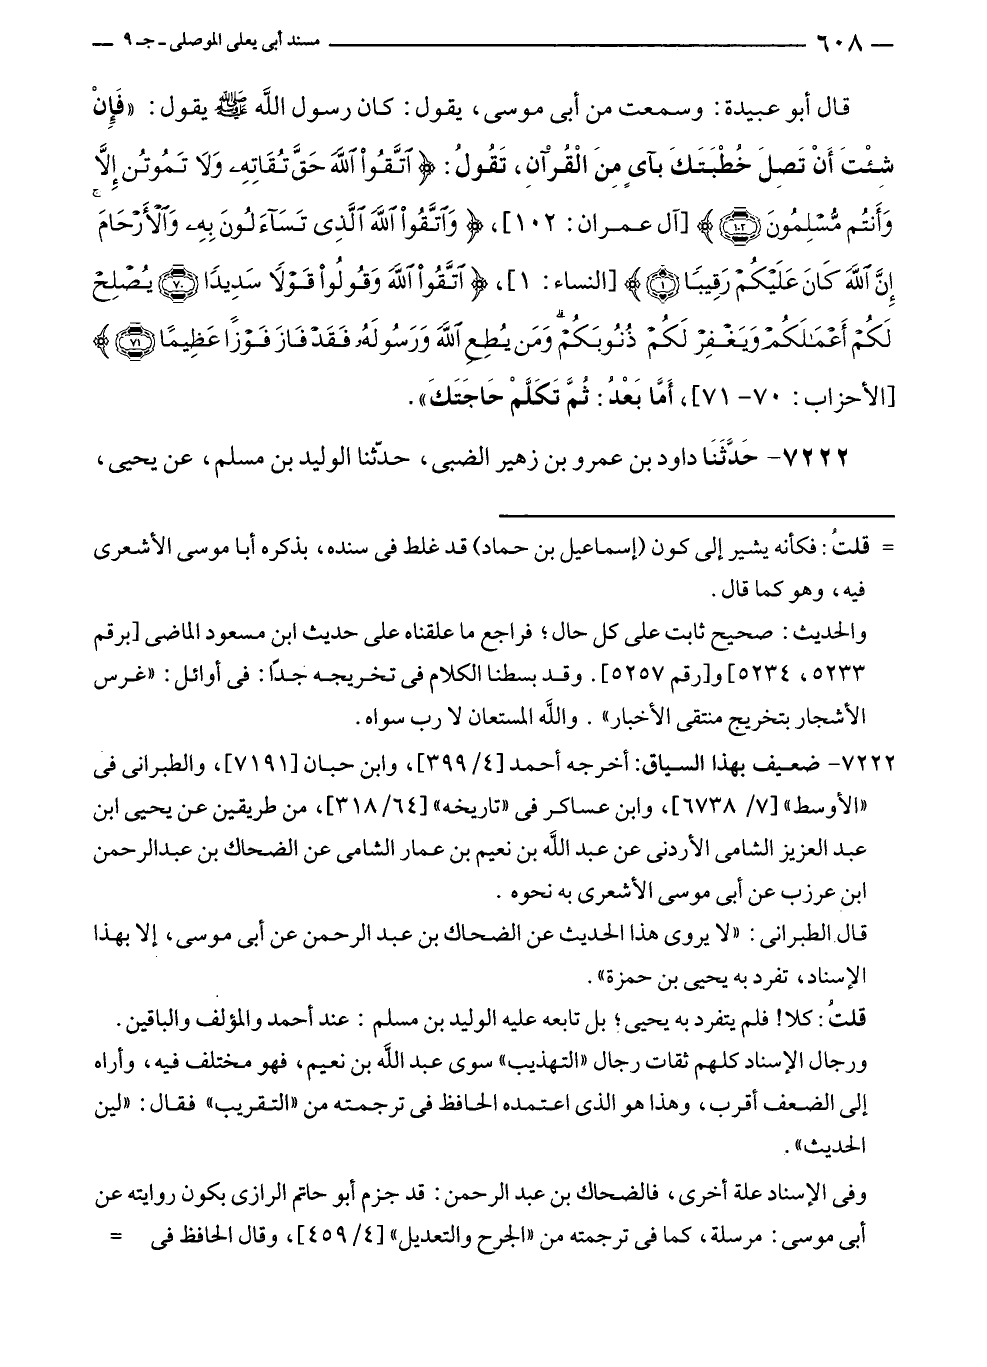 — ٦٠٨ ————— مسند أبى يعلى الموصلى - جـ ٩ —
قال أبو عبيدة: وسمعت من أبى موسى، يقول: كان رسول اللَّه ﷺ يقول: «فَإِنْ
شئْتَ أَنْ تَصلَ خُطْبَتَكَ بآىٍ منَ الْقُرآن، تَقُولُ: ﴿ ٱتَّقُوا۟ ٱللَّهَ حَقَّ تُقَاتِهِۦ وَلَا تَمُوتُنَّ إِلَّا
وَأَنتُم مُّسْلِمُونَ ١٠٢﴾ [آل عمـران: ١٠٢]، ﴿ وَٱتَّقُوا۟ ٱللَّهَ ٱلَّذِى تَسَآءَلُونَ بِهِۦ وَٱلْأَرْحَامَ ۚ
إِنَّ ٱللَّهَ كَانَ عَلَيْكُمْ رَقِيبًا ١﴾ [النساء: ١]، ﴿ ٱتَّقُوا۟ ٱللَّهَ وَقُولُوا۟ قَوْلًا سَدِيدًا ٧٠ يُصْلِحْ
لَكُمْ أَعْمَـٰلَكُمْ وَيَغْفِرْ لَكُمْ ذُنُوبَكُمْ ۗ وَمَن يُطِعِ ٱللَّهَ وَرَسُولَهُۥ فَقَدْ فَازَ فَوْزًا عَظِيمًا ٧١﴾
[الأحزاب: ٧٠- ٧١]، أَمَّا بَعْدُ: ثُمَّ تَكَلَّمْ حَاجَتَكَ».
٧٢٢٢- حَدَّثَنَا داود بن عمرو بن زهير الضبى، حدّثنا الوليد بن مسلم، عن يحيى،
= قلتُ: فكأنه يشير إلى كون (إسماعيل بن حماد) قد غلط فى سنده، بذكره أبا موسى الأشعرى
فيه، وهو كما قال.
والحديث: صحيح ثابت على كل حال؛ فراجع ما علقناه على حديث ابن مسعود الماضى [برقم
٥٢٣٣، ٥٢٣٤] و[رقم ٥٢٥٧]. وقـد بسطنا الكلام فى تخـريجـه جـدًا: فى أوائل: «غـرس
الأشجار بتخريج منتقى الأخبار» . واللَّه المستعان لا رب سواه.
٧٢٢٢- ضعـيف بهذا السياق: أخرجه أحمد [٤/ ٣٩٩]، وابن حبان [٧١٩١]، والطبرانى فى
«الأوسط» [٧/ ٦٧٣٨]، وابن عساكـر فى «تاريخه» [٦٤/ ٣١٨]، من طريقين عن يحيى ابن
عبد العزيز الشامى الأردنى عن عبد اللَّه بن نعيم بن عمار الشامى عن الضحاك بن عبدالرحمن
ابن عرزب عن أبى موسى الأشعرى به نحوه .
قال الطبرانى: «لا يروى هذا الحديث عن الضحاك بن عبد الرحمن عن أبى موسى، إلا بهذا
الإسناد، تفرد به يحيى بن حمزة».
قلتُ: كلا! فلم يتفرد به يحيى؛ بل تابعه عليه الوليد بن مسلم : عند أحمد والمؤلف والباقين.
ورجال الإسناد كلـهم ثقات رجال «التهذيب» سوى عبد اللَّه بن نعيم، فهو مختلف فيه، وأراه
إلى الضـعف أقرب، وهذا هو الذى اعـتـمده الحـافظ فى ترجمـته من «التـقـريب» فقـال: «لين
الحديث».
وفى الإسناد علة أخرى، فالضحاك بن عبد الرحمن: قد جزم أبو حاتم الرازى بكون روايته عن
أبى موسى: مرسلة، كما فى ترجمته من «الجرح والتعديل» [٤/ ٤٥٩]، وقال الحافظ فى =